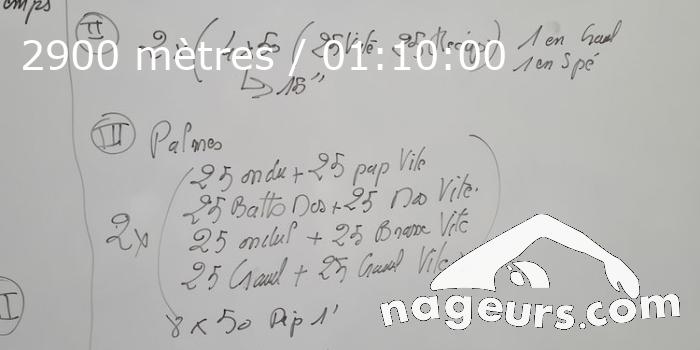 emps
II 2 x ( 4 x 50 ( 25 Vite 25 Récup ) 1 en Crawl
1 en Spé
2900 mètres / 01:10:00
↳ 15"
III Palmes
25 ondu + 25 pap Vite
25 Batt Dos + 25 Dos Vite.
2x
25 ondul + 25 Brasse Vite
25 Crawl + 25 Crawl Vite
8 x 50 Dép 1'
I
nageurs.com